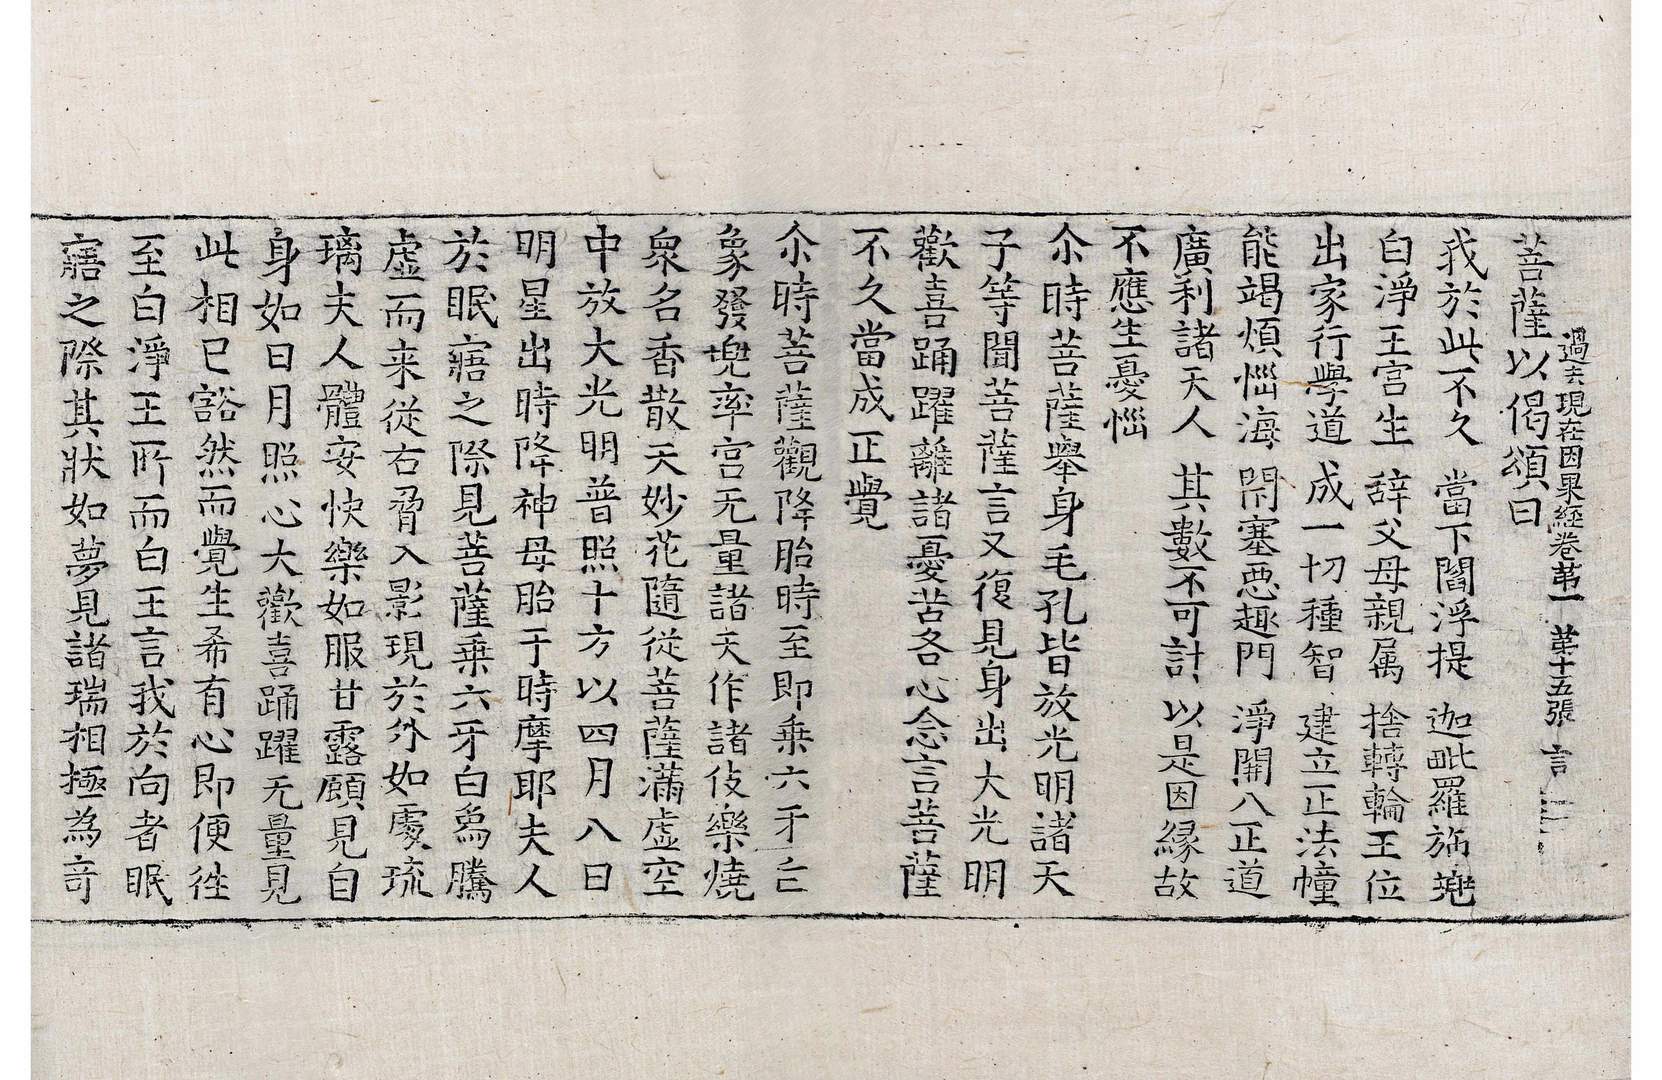 過去現在因果經卷第一 第十五張 言
菩薩以偈頌曰
我於此不久 當下閻浮提 迦毗羅斾兠
白淨王宮生 辞父母親属 捨轉輪王位
出家行學道 成一切種智 建立正法幢
能竭煩惱海 閇塞惡趣門 淨開八正道
廣利諸天人 其數不可計 以是因緣故
不應生憂惱
尒時菩薩舉身毛孔皆放光明諸天
子等聞菩薩言又復見身出大光明
歡喜踊躍離諸憂苦各心念言菩薩
不久當成正覺
尒時菩薩觀降胎時至即乗六牙白
象發兠率宮无量諸天作諸伎樂燒
衆名香散天妙花隨從菩薩滿虛空
中放大光明普照十方以四月八日
明星出時降神母胎于時摩耶夫人
於眠寤之際見菩薩乗六牙白為騰
虛而来從右脅入影現於外如處琉
璃夫人體安快樂如服甘露顧見自
身如日月照心大歡喜踊躍无量見
此相已豁然而覺生希有心即便徃
至白淨王所而白王言我於向者眠
寤之際其狀如夢見諸瑞相極為竒